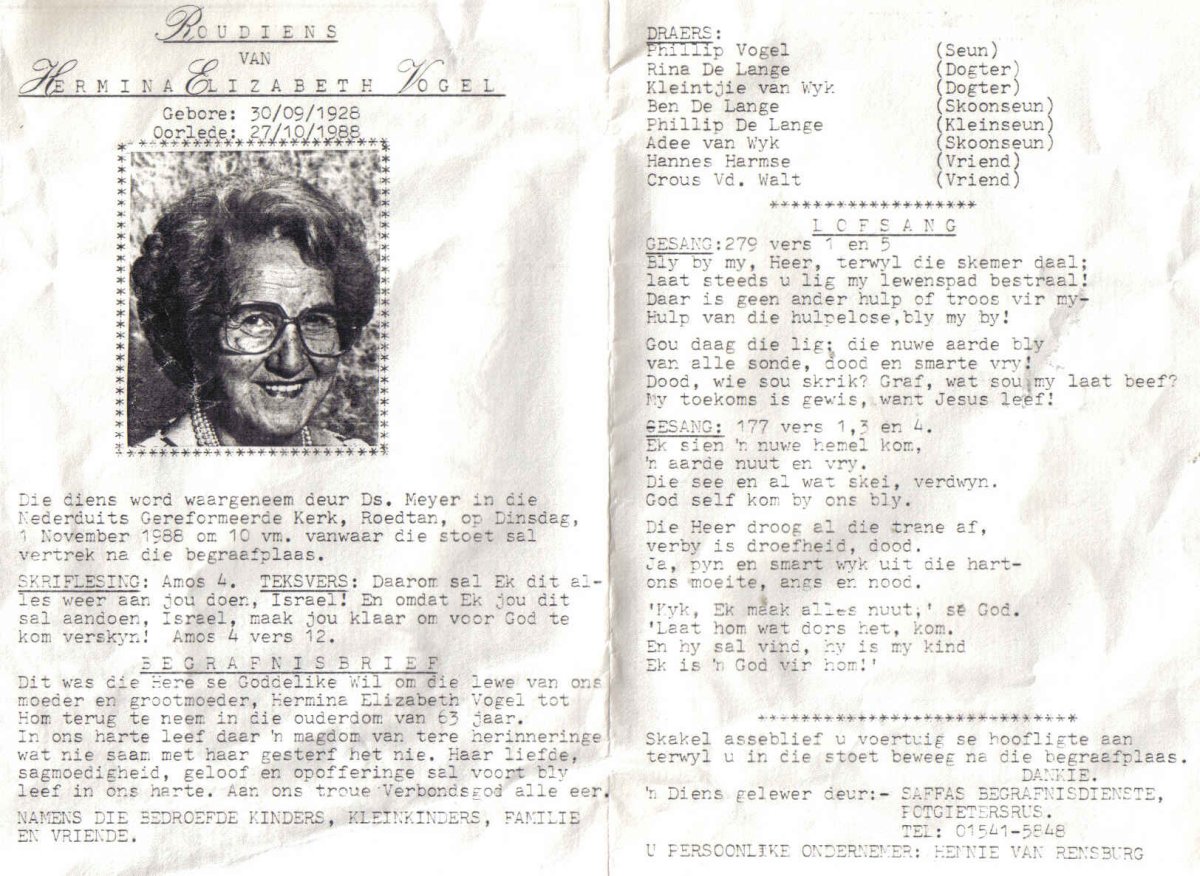 ROUDIENS
VAN
HERMINA ELIZABETH VOGEL
Gebore: 30/09/1928
Oorlede: 27/10/1988
Die diens word waargeneem deur Ds. Meyer in die
Nederduits Gereformeerde Kerk, Roedtan, op Dinsdag,
1 November 1988 om 10 vm. vanwaar die stoet sal
vertrek na die begraafplaas.
SKRIFLESING: Amos 4. TEKSVERS: Daarom sal Ek dit al-
les weer aan jou doen, Israel! En omdat Ek jou dit
sal aandoen, Israel, maak jou klaar om voor God te
kom verskyn! Amos 4 vers 12.
BEGRAFNISBRIEF
Dit was die Here se Goddelike Wil om die lewe van ons
moeder en grootmoeder, Hermina Elizabeth Vogel tot
Hom terug te neem in die ouderdom van 63 jaar.
In ons harte leef daar 'n magdom van tere herinneringe
wat nie saam met haar gesterf het nie. Haar liefde,
sagmoedigheid, geloof en opofferinge sal voort bly
leef in ons harte. Aan ons troue Verbondsgod alle eer.
NAMENS DIE BEDROEFDE KINDERS, KLEINKINDERS, FAMILIE
EN VRIENDE.
DRAERS:
Phillip Vogel (Seun)
Rina De Lange (Dogter)
Kleintjie van Wyk (Dogter)
Ben De Lange (Skoonseun)
Phillip De Lange (Kleinseun)
Adee van Wyk (Skoonseun)
Hannes Harmse (Vriend)
Crous Vd. Walt (Vriend)
******************
LOFSANG
GESANG:279 vers 1 en 5
Bly by my, Heer, terwyl die skemer daal;
laat steeds u lig my lewenspad bestraal!
Daar is geen ander hulp of troos vir my-
Hulp van die hulpelose,bly my by!
Gou daag die lig; die nuwe aarde bly
van alle sonde, dood en smarte vry!
Dood, wie sou skrik? Graf, wat sou my laat beef?
My toekoms is gewis, want Jesus leef!
GESANG: 177 vers 1,3 en 4.
Ek sien 'n nuwe hemel kom,
'n aarde nuut en vry.
Die see en al wat skei, verdwyn.
God self kom by ons bly.
Die Heer droog al die trane af,
verby is droefheid, dood.
Ja, pyn en smart wyk uit die hart-
ons moeite, angs en nood.
'Kyk, Ek maak alles nuut,' sê God.
'Laat hom wat dors het, kom.
En hy sal vind, hy is my kind
Ek is 'n God vir hom!'
****************************
Skakel asseblief u voertuig se hoofligte aan
terwyl u in die stoet beweeg na die begraafplaas.
DANKIE.
'n Diens gelewer deur:- SAFFAS BEGRAFNISDIENSTE,
POTGIETERSRUS.
TEL: 01541-5848
U PERSOONLIKE ONDERNEMER: HENNIE VAN RENSBURG